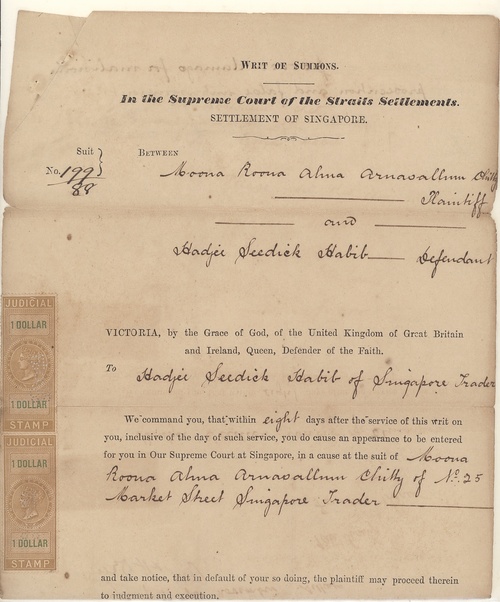 WRIT OF SUMMONS.
In the Supreme Court of the Straits Settlements.
SETTLEMENT OF SINGAPORE.
Suit
No. 199/89
BETWEEN
Moona Roona Alma Arnasallum Chitty
Plaintiff
and
Hadjee Seedick Habib Defendant
JUDICIAL
1 DOLLAR
1 DOLLAR
STAMP
JUDICIAL
1 DOLLAR
1 DOLLAR
STAMP
VICTORIA, by the Grace of God, of the United Kingdom of Great Britain
and Ireland, Queen, Defender of the Faith.
To Hadjee Seedick Habib of Singapore Trader
We command you, that within eight days after the service of this writ on
you, inclusive of the day of such service, you do cause an appearance to be entered
for you in Our Supreme Court at Singapore, in a cause at the suit of Moona
Roona Alma Arnasallum Chitty of No. 25
Market Street Singapore Trader
and take notice, that in default of your so doing, the plaintiff may proceed therein
to judgment and execution.